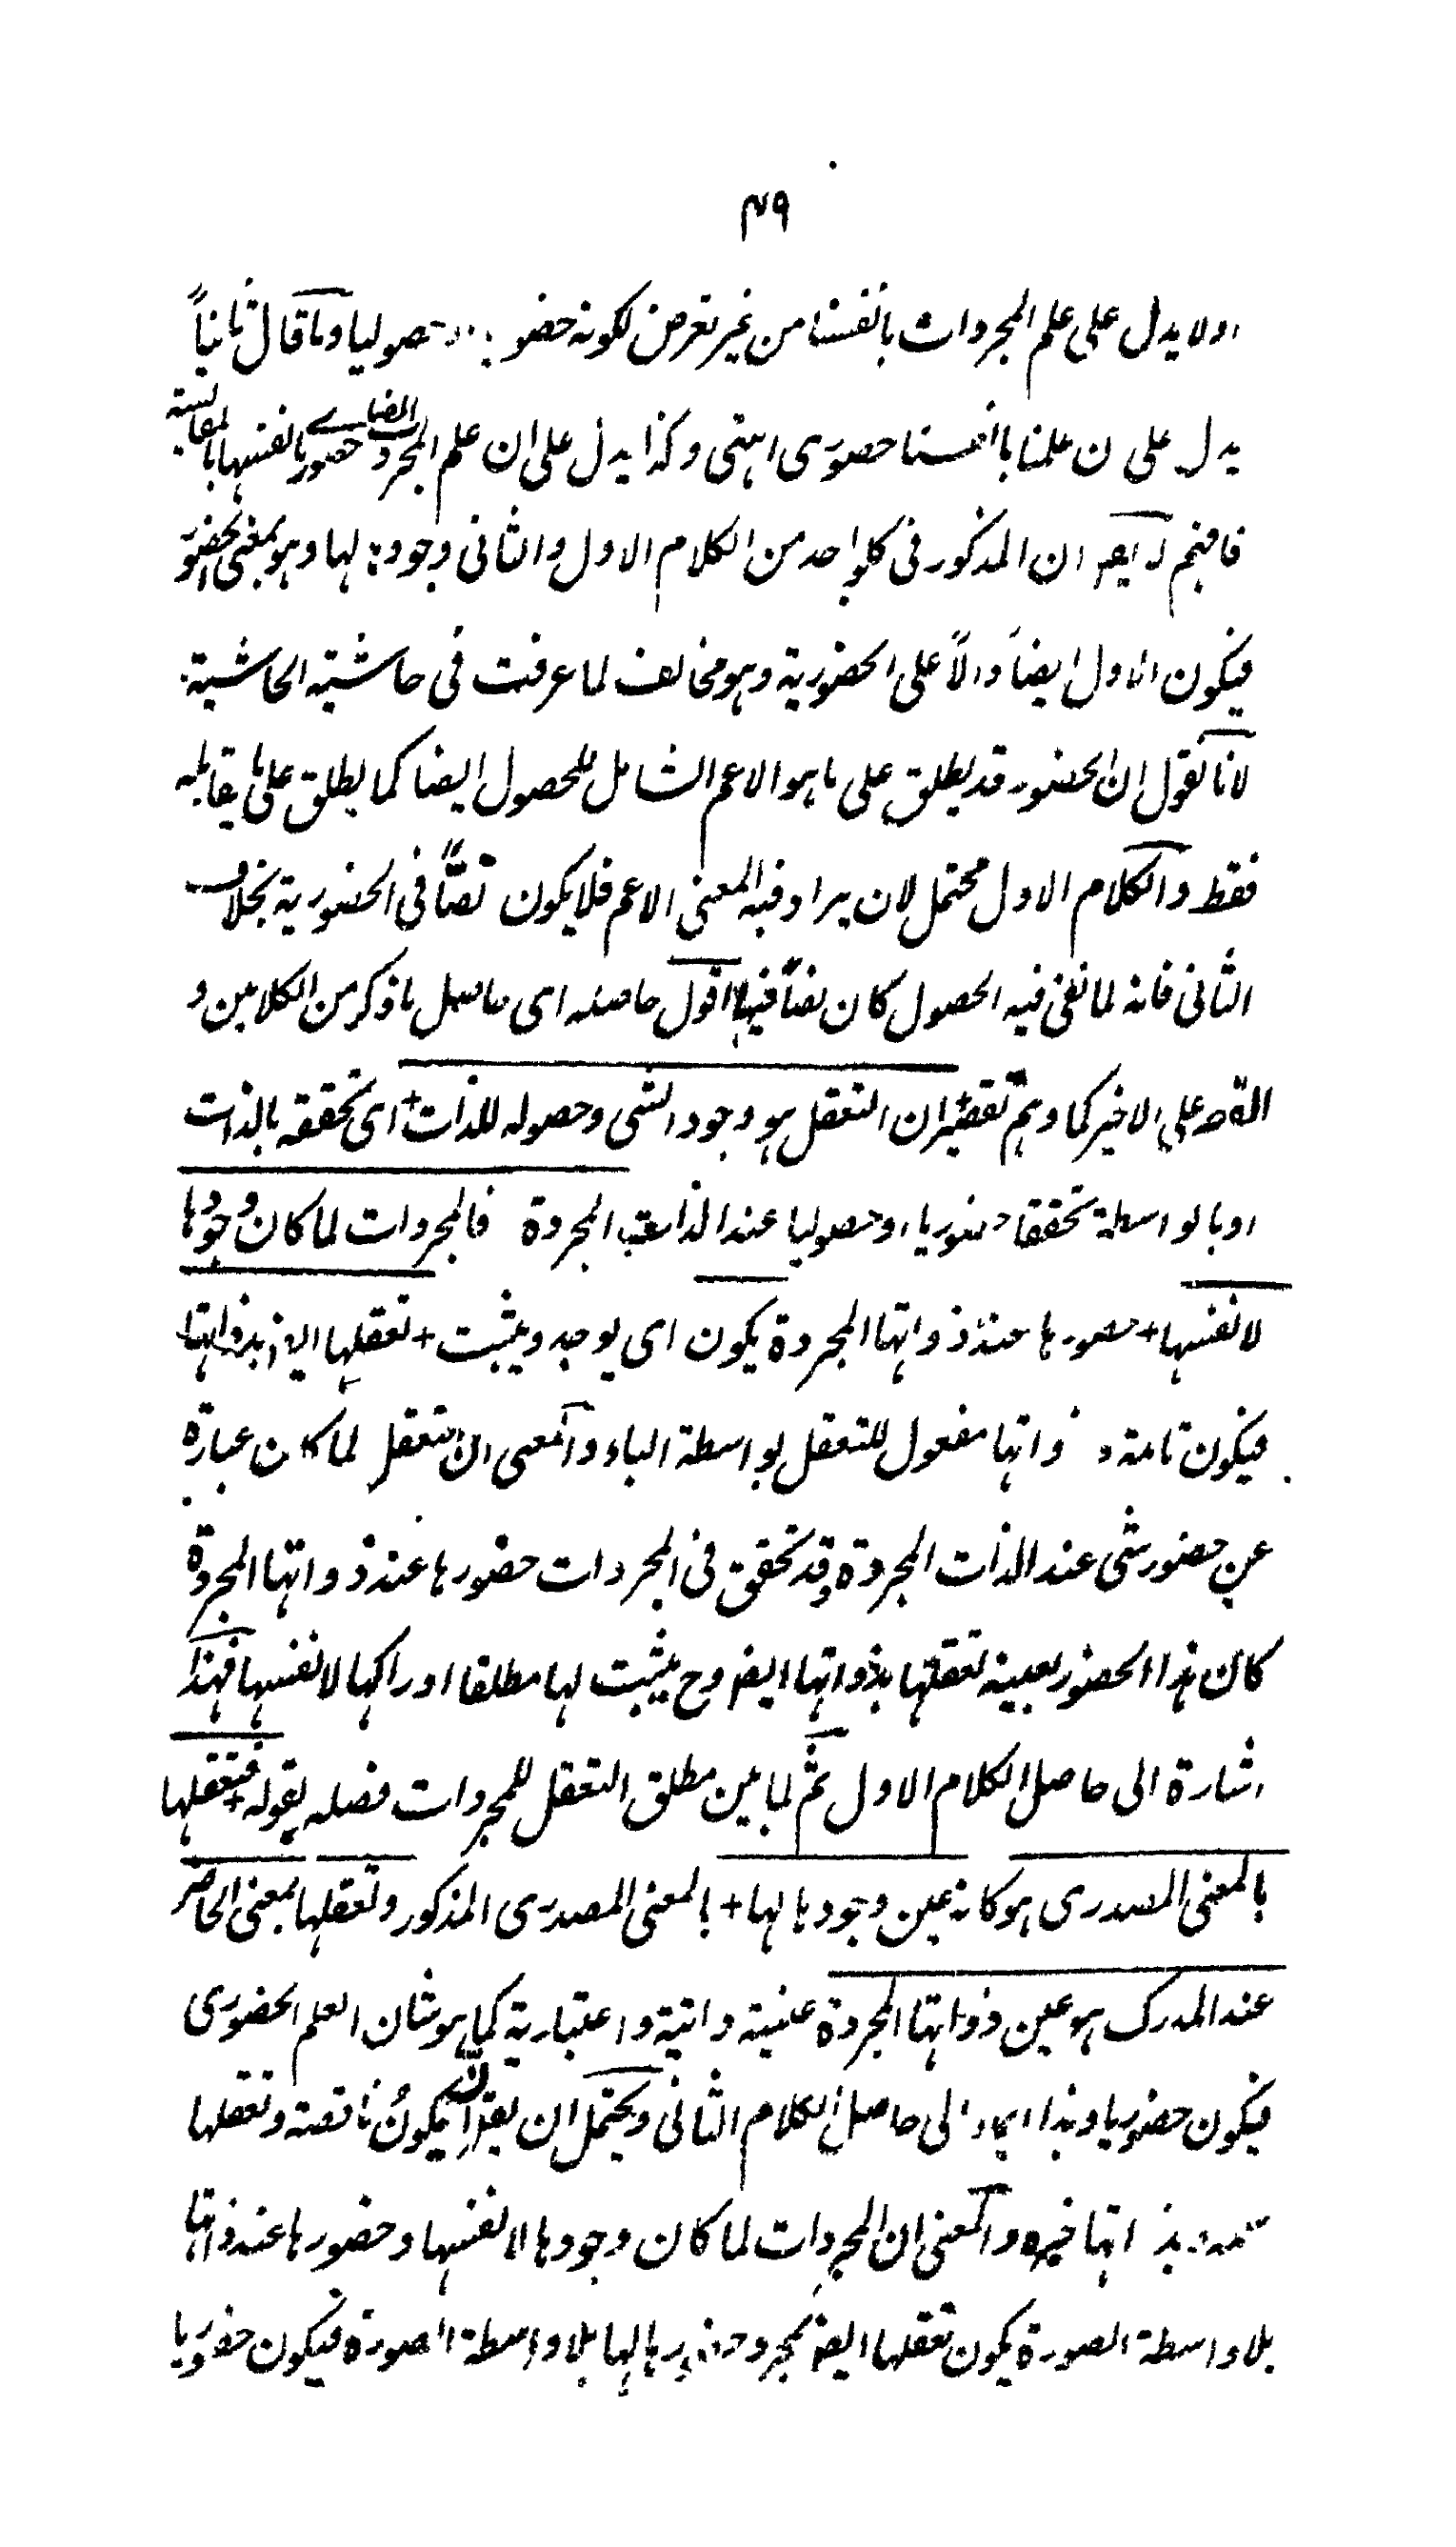 ٤٩
اولا يدل على علم المجردات بانفسنا من غير تعرض لكونه حضوريا او حصوليا وما قال ثانياً
يدل على ان علمنا بانفسنا حضورى انتهى وكذا يدل على ان علم المجردات بانفسها ايضا حضورى بالمقايسة
فافهم لا يقال ان المذكور فى كلواحد من الكلام الاول والثانى وجودها لها وهو بمعنى الحضور
فيكون الاول ايضا دالاً على الحضورية وهو مخالف لما عرفت فى حاشية الحاشية
لانا نقول ان الحضور قد يطلق على ما هو الاعم الشامل للحصول ايضا كما يطلق على ما يقابله
فقط والكلام الاول محتمل لان يراد فيه المعنى الاعم فلا يكون نصًّا فى الحضورية بخلاف
الثانى فانه لما نفى فيه الحصول كان نصًّا فيها اقول حاصله اى حاصل ما ذكر من الكلامين و
على الاخير كما وهم تقصير ان التعقل هو وجود الشى وحصوله للذات+ اى تحققه بالذات
او بالواسطة تحققا حضوريا او حصوليا عند الذات المجردة فالمجردات لما كان وجودها
لانفسها+ حضورها عند ذواتها المجردة يكون اى يوجد ويثبت+ تعقلها ايضا بذواتها
فيكون تامة و ذواتها مفعول للتعقل بواسطة الباء والمعنى ان التعقل لما كان عبارة
عن حضور شى عند الذات المجردة وقد تحقق فى المجردات حضورها عند ذواتها المجردة
كان هذا الحضور بعينه تعقلها بذواتها ايضا وح يثبت لها مطلقا ادراكها لانفسها فهذا
اشارة الى حاصل الكلام الاول ثم لما بين مطلق التعقل للمجردات فصله بقوله+ فتعقلها
بالمعنى المصدرى هو كانه عين وجودها لها+ بالمعنى المصدرى المذكور وتعقلها بمعنى الحاضر
عند المدرك هو عين ذواتها المجردة عينية ذاتية واعتبارية كما هو شان العلم الحضورى
فيكون حضوريا وهذا ايماء الى حاصل الكلام الثانى ويحتمل ان يقرأ يكونُ ناقصة وتعقلها
اسمه وبذواتها خبره والمعنى ان المجردات لما كان وجودها لانفسها وحضورها عند ذواتها
بلا واسطة الصورة يكون تعقلها ايضا بمجرد حضورها لها بلا واسطة الصورة فيكون حضوريا